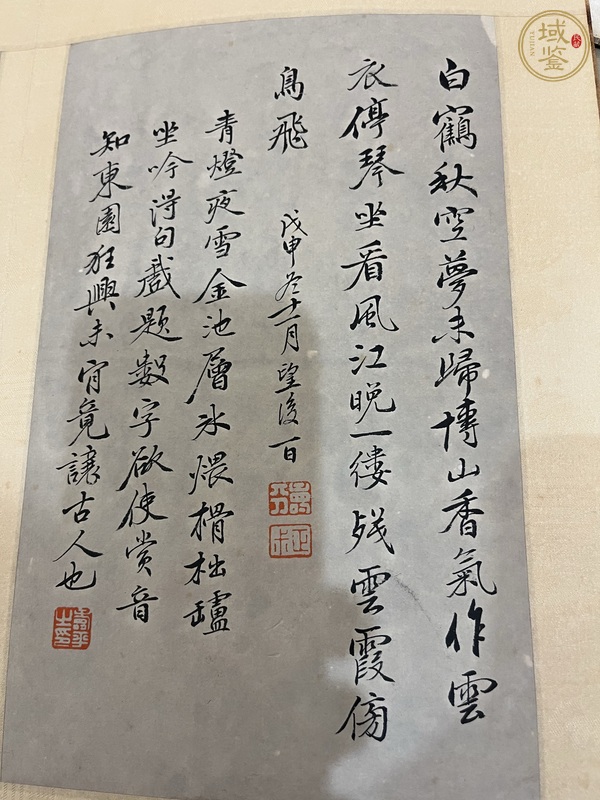 白鶴秋空夢未歸博山香氣作雲
衣停琴坐看風江晚一縷殘雲霞傍
鳥飛
戊申冬十一月望後一日
青燈夜雪金池層冰煨榾柮罏
坐吟得句戲題數字欲使賞音
知東園狂興未肯竟讓古人也
域鉴
YUJIAN